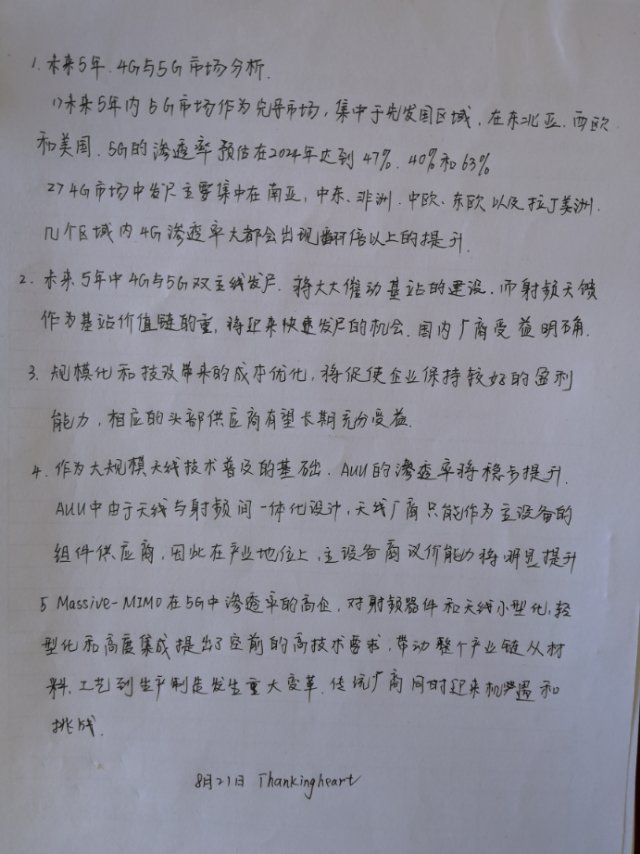 1. 未来5年,4G与5G市场分析.
1)未来5年内5G市场作为先导市场,集中于先发国区域,在东北亚、西欧
和美国、5G的渗透率预估在2024年达到47%、40%和63%
2) 4G市场中发尸主要集中在南亚,中东、非洲、中欧、东欧以及拉丁美洲.
几个区域内4G渗透率大都会出现翻倍以上的提升.
2. 未来5年中4G与5G双主线发尸.将大大催动基站的建设.而射频天馈
作为基站价值链的重,将迎来快速发尸的机会.国内厂商受益明确.
3. 规模化和技改带来的成本优化,将促使企业保持较好的盈利
能力,相应的头部供应商有望长期充分受益.
4. 作为大规模天线技术普及的基础.AUU的渗透率将稳步提升.
AUU中由于天线与射频间一体化设计,天线厂商只能作为主设备的
组件供应商,因此在产业地位上,主设备商议价能力将明显提升
5 Massive-MIMO在5G中渗透率的高企,对射频器件和天线小型化,轻
型化和高度集成提出了空前的高技术要求,带动整个产业链从材
料、工艺到生产制造发生重大变革.传统厂商同时迎来机遇和
挑战.
8月21日 Thankingheart